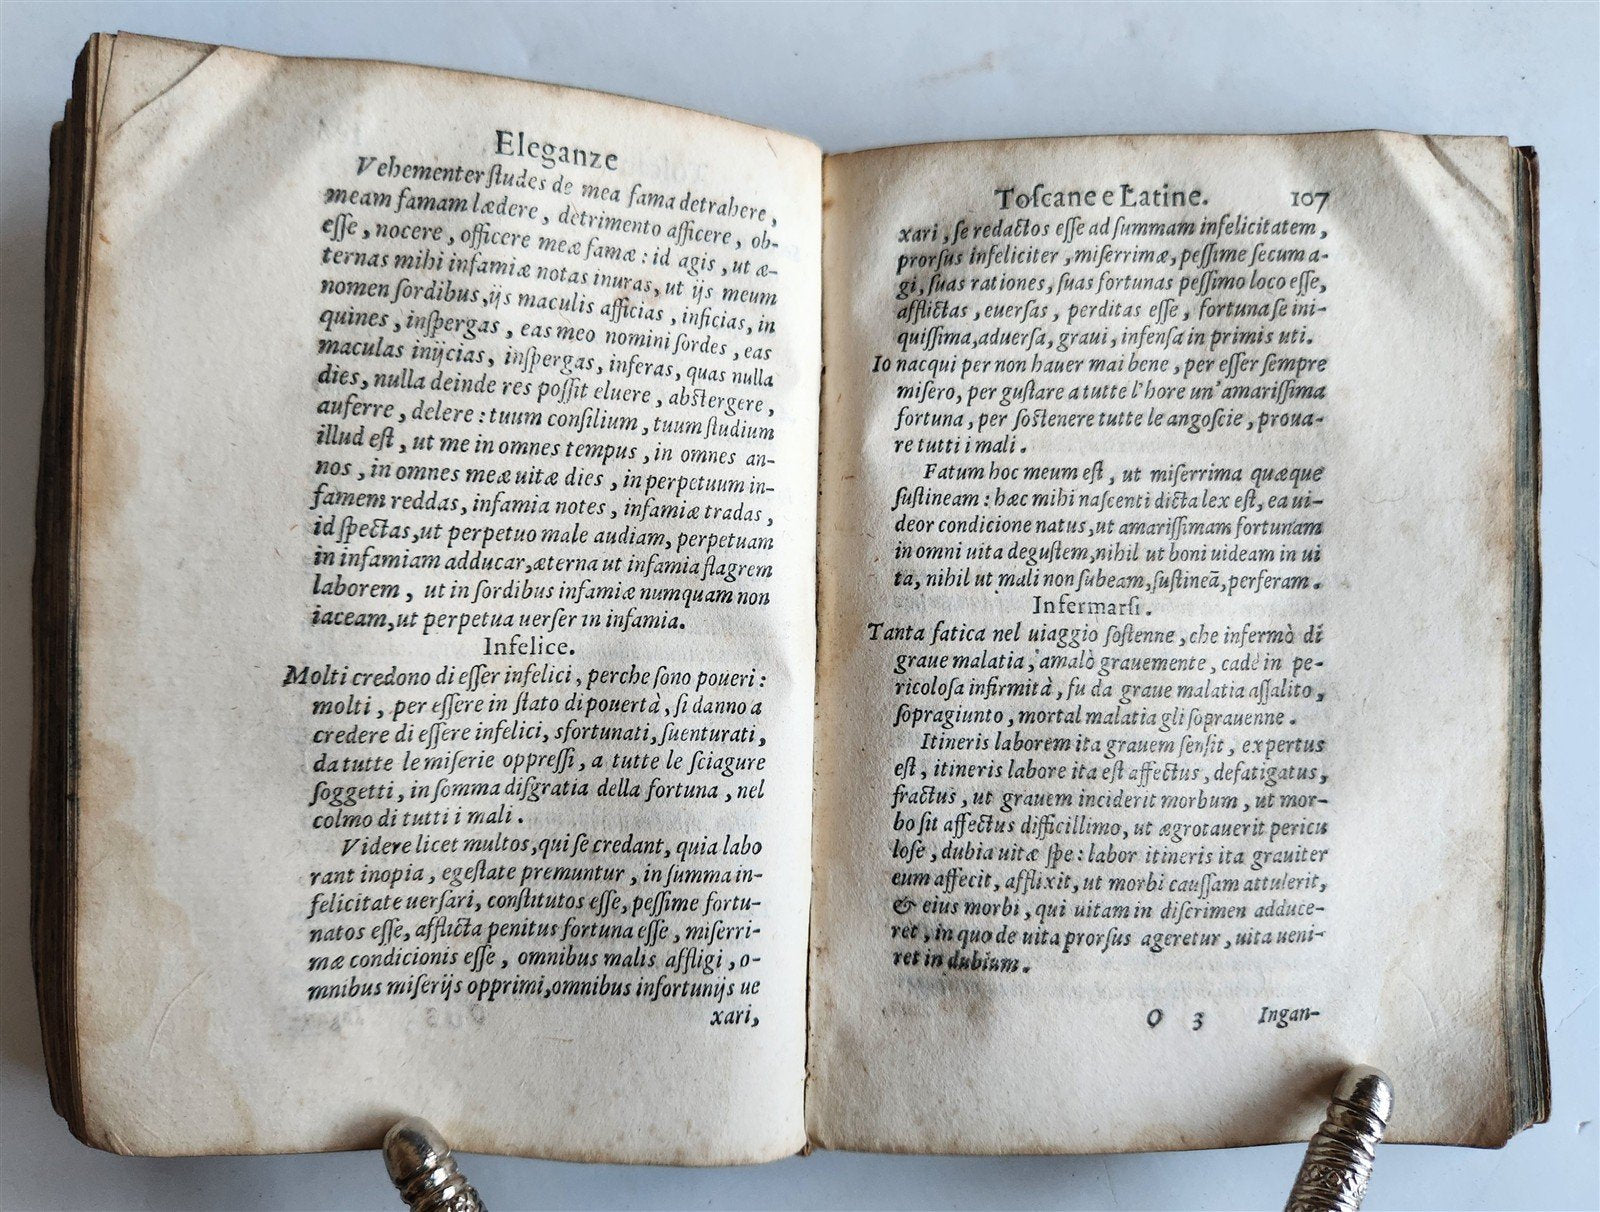 Eleganze
Vehementer ſtudes de mea fama detrahere,
meam famam lædere, detrimento afficere, ob-
eſſe, nocere, officere meæ famæ: id agis, ut æ-
ternas mihi infamiæ notas inuras, ut ijs meum
nomen ſordibus, ijs maculis afficias, inficias, in
quines, inſpergas, eas meo nomini ſordes, eas
maculas inijcias, inſpergas, inferas, quas nulla
dies, nulla deinde res poſſit eluere, abſtergere,
auferre, delere: tuum conſilium, tuum ſtudium
illud eſt, ut me in omnes tempus, in omnes an-
nos, in omnes meæ uitæ dies, in perpetuum in-
famem reddas, infamia notes, infamiæ tradas,
id ſpectas, ut perpetuo male audiam, perpetuam
in infamiam adducar, æterna ut infamia flagrem
laborem, ut in ſordibus infamiæ numquam non
iaceam, ut perpetua uerſer in infamia.
Infelice.
Molti credono di eſſer infelici, perche ſono poueri:
molti, per eſſere in ſtato di pouertà, ſi danno a
credere di eſſere infelici, sfortunati, ſuenturati,
da tutte le miſerie oppreſſi, a tutte le ſciagure
ſoggetti, in ſomma diſgratia della fortuna, nel
colmo di tutti i mali.
Videre licet multos, qui ſe credant, quia labo
rant inopia, egeſtate premuntur, in ſumma in-
felicitate uerſari, conſtitutos eſſe, peſſime fortu-
natos eſſe, afflicta penitus fortuna eſſe, miſerri-
mæ condicionis eſſe, omnibus malis affligi, o-
mnibus miſerijs opprimi, omnibus infortunijs ue
xari,
Toſcane e Latine. 107
xari, ſe redactos eſſe ad ſummam infelicitatem,
prorſus infeliciter, miſerrimæ, peſſime ſecum a-
gi, ſuas rationes, ſuas fortunas peſſimo loco eſſe,
afflictas, euerſas, perditas eſſe, fortuna ſe ini-
quiſſima, aduerſa, graui, infenſa in primis uti.
Io nacqui per non hauer mai bene, per eſſer ſempre
miſero, per guſtare a tutte l'hore un'amariſſima
fortuna, per ſoſtenere tutte le angoſcie, proua-
re tutti i mali.
Fatum hoc meum eſt, ut miſerrima quæque
ſuſtineam: hæc mihi naſcenti dicta lex eſt, ea ui-
deor condicione natus, ut amariſſimam fortunam
in omni uita deguſtem, nihil ut boni uideam in ui
ta, nihil ut mali non ſubeam, ſuſtineã, perferam.
Infermarſi.
Tanta fatica nel uiaggio ſoſtenne, che infermò di
graue malatia, amalò grauemente, cadè in pe-
ricoloſa infirmità, fu da graue malatia aſſalito,
ſopragiunto, mortal malatia gli ſoprauenne.
Itineris laborem ita grauem ſenſit, expertus
eſt, itineris labore ita eſt affectus, defatigatus,
fractus, ut grauem inciderit morbum, ut mor-
bo ſit affectus difficillimo, ut ægrotauerit pericu
loſe, dubia uitæ ſpe: labor itineris ita grauiter
eum affecit, afflixit, ut morbi cauſſam attulerit,
& eius morbi, qui uitam in diſcrimen adduce-
ret, in quo de uita prorſus ageretur, uita ueni-
ret in dubium.
O 3 Ingan-